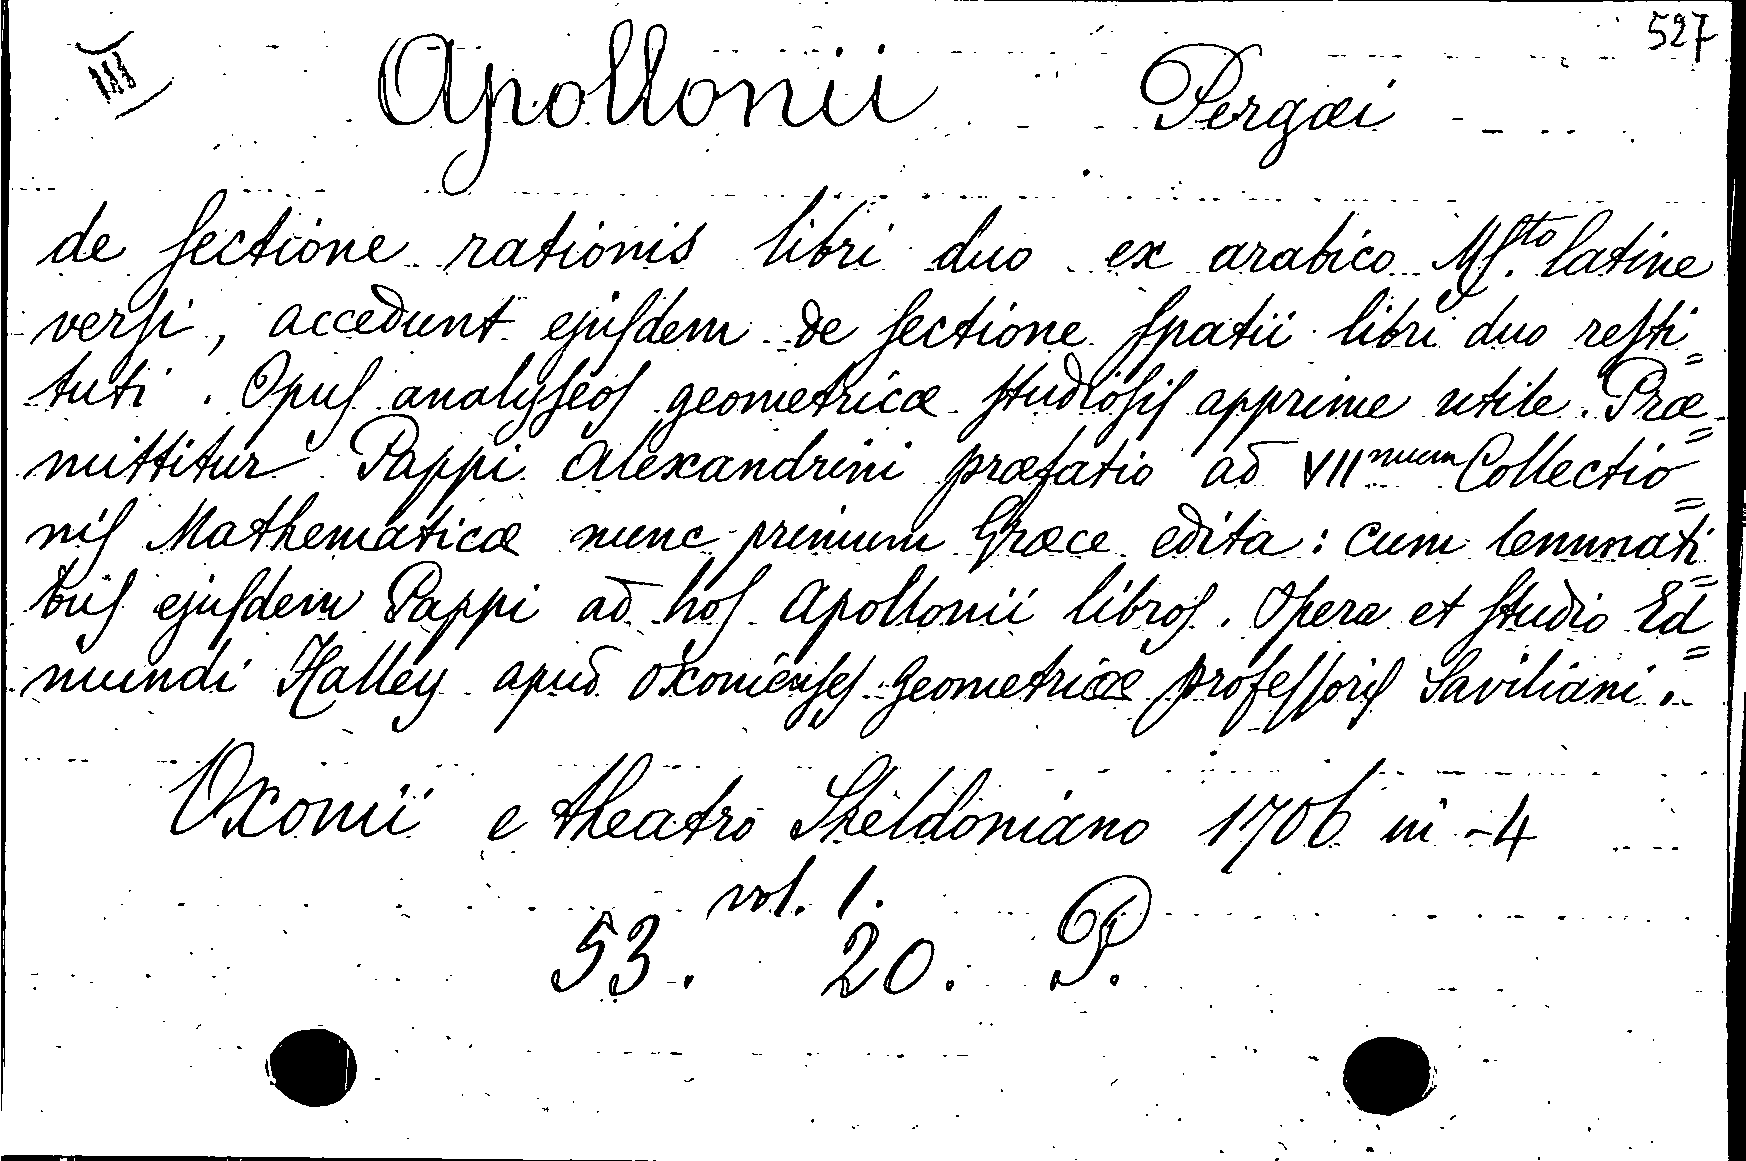 527
III
Apollonii Pergæi
de ſectione rationis libri duo ex arabico Mſ.to latine
verſi, accedunt ejuſdem de ſectione ſpatii libri duo reſti=
tuti. Opuſ analyſeoſ geometricæ ſtudioſiſ apprime utile. Præ=
mittitur Pappi Alexandrini præfatio ad VIInum Collectio=
niſ Mathematicæ nunc primum Græce edita: cum lemmati=
buſ ejuſdem Pappi ad hoſ Apollonii libroſ. Opera et ſtudio Ed=
mundi Halley apud oxonienſeſ geometriæ profeſſoriſ Saviliani.
Oxonii e theatro Skeldoniano 1706 in-4
vol. 1.
53. 20. P.